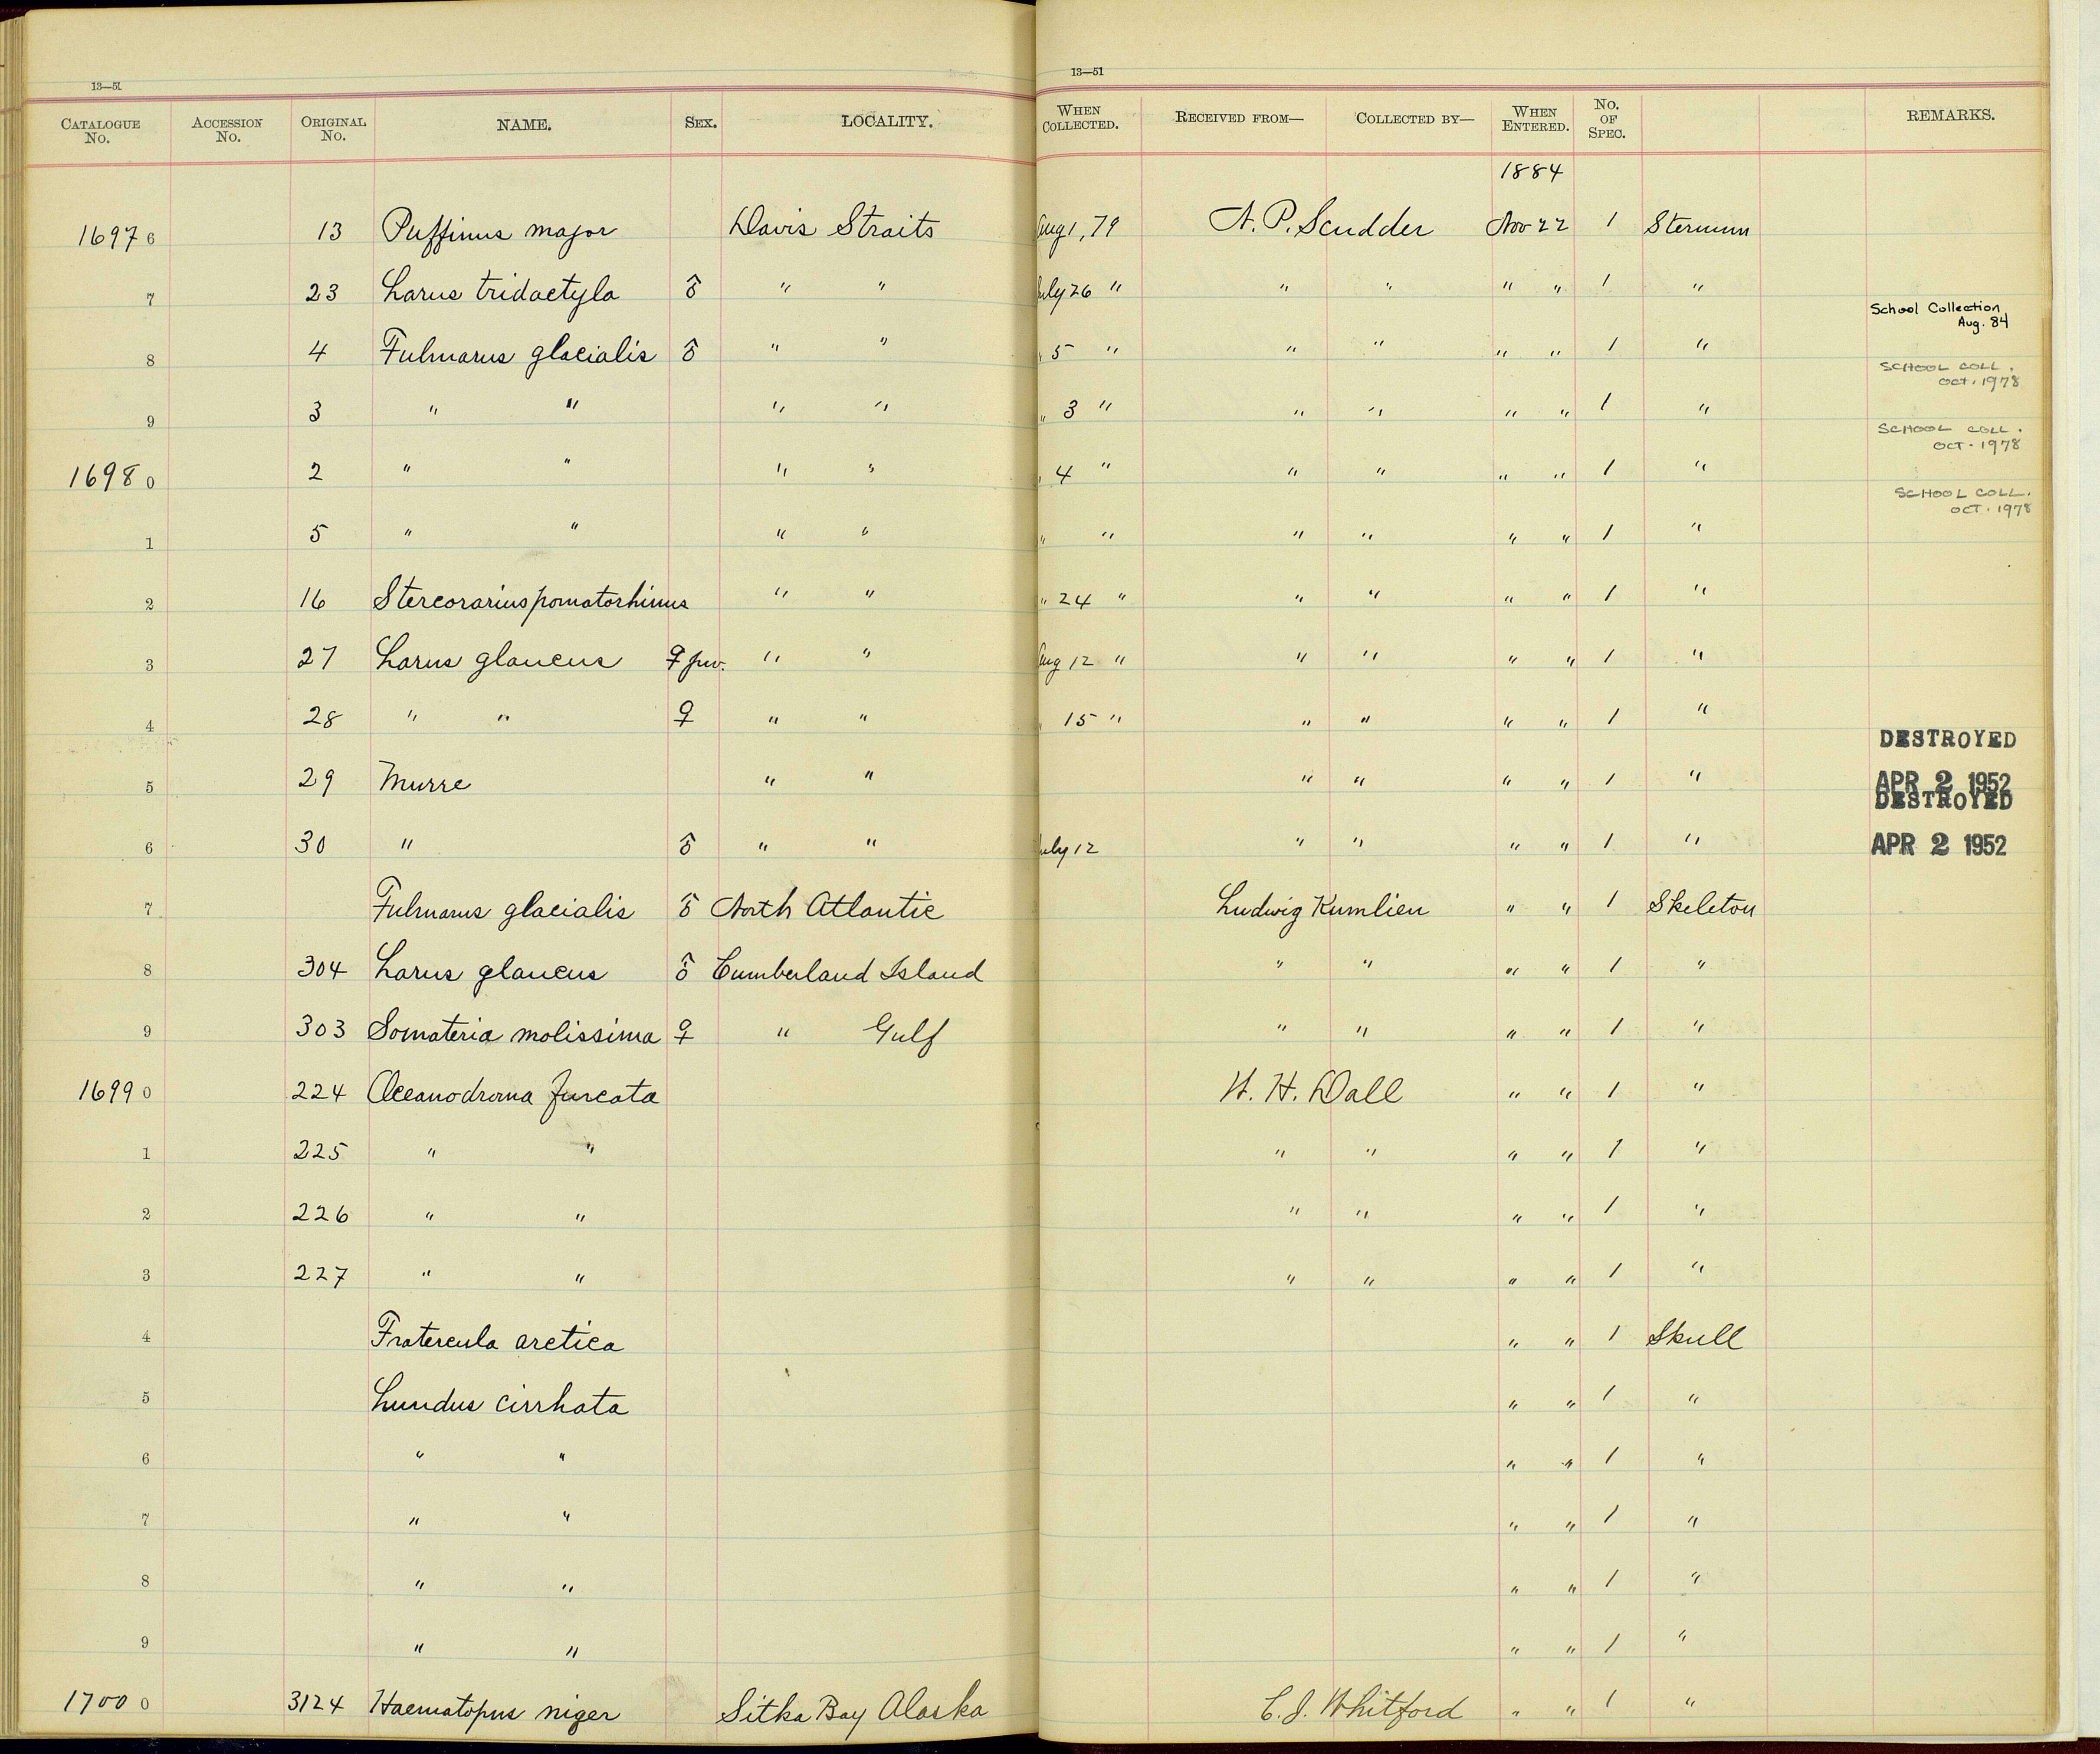 13—51 13—51
CATALOGUE No. ACCESSION No. ORIGINAL No. NAME. SEX. LOCALITY. WHEN COLLECTED. RECEIVED FROM— COLLECTED BY— WHEN ENTERED. No. OF SPEC. REMARKS.
1884
16976 13 Puffinus major Davis Straits Aug 1, 79 N. P. Scudder Nov 22 1 Sternum
7 23 Larus tridactyla ♂ " " July 26 " " " " " 1 "
School Collection
Aug. 84
8 4 Fulmarus glacialis ♂ " " " 5 " " " " " 1 "
SCHOOL COLL.
OCT. 1978
9 3 " " " " " 3 " " " " " 1 "
SCHOOL COLL.
OCT. 1978
16980 2 " " " " " 4 " " " " " 1 "
SCHOOL COLL.
OCT. 1978
1 5 " " " " " " " " " " 1 "
2 16 Stercorarius pomatorhinus " " " 24 " " " " " 1 "
3 27 Larus glaucus ♀ juv. " " Aug 12 " " " " " 1 "
4 28 " " ♀ " " " 15 " " " " " 1 "
DESTROYED
5 29 Murre " " " " " " 1 " APR 2 1952
DESTROYED
6 30 " ♂ " " July 12 " " " " 1 " APR 2 1952
7 Fulmarus glacialis ♂ North Atlantic Ludwig Kumlien " " 1 Skeleton
8 304 Larus glaucus ♂ Cumberland Island " " " " 1 "
9 303 Somateria molissima ♀ " Gulf " " " " 1 "
16990 224 Oceanodroma furcata W. H. Dall " " 1 "
1 225 " " " " " " 1 "
2 226 " " " " " " 1 "
3 227 " " " " " " 1 "
4 Fratercula arctica " " 1 Skull
5 Lundus cirrhata " " 1 "
6 " " " " 1 "
7 " " " " 1 "
8 " " " " 1 "
9 " " " " 1 "
17000 3124 Haematopus niger Sitka Bay Alaska C. J. Whitford " " 1 "